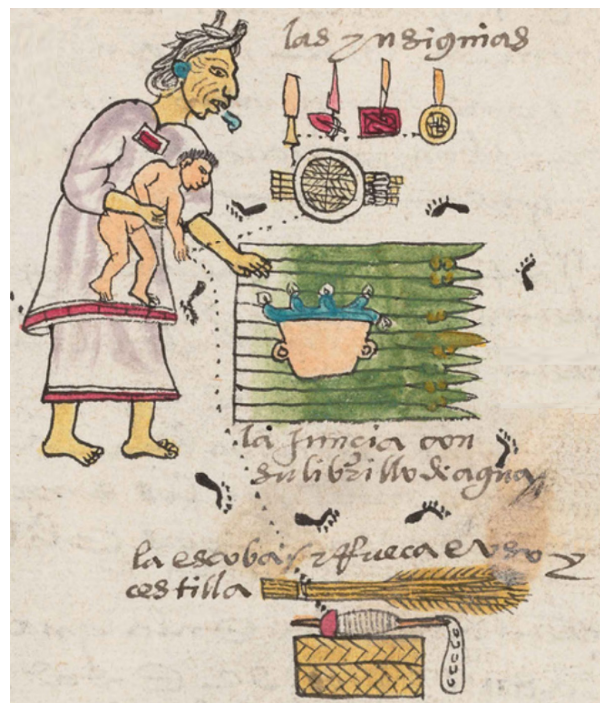 las ynsignias
la Juncia con
su librillo de agua
la escoba / y Rueca e uso y
cestilla